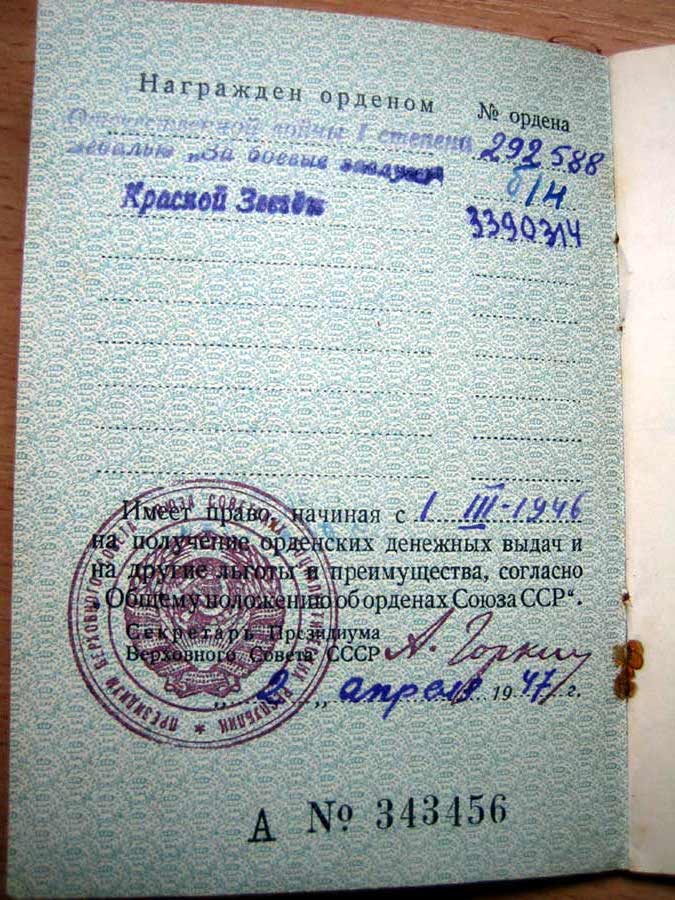 Награжден орденом № ордена
Отечественной войны I степени 292588
Медалью „За боевые заслуги" б/н
Красной Звезды 3390314
Имеет право, начиная с 1 III-1946
на получение орденских денежных выдач и
на другие льготы и преимущества, согласно
„Общему положению об орденах Союза ССР“.
Секретарь Президиума
Верховного Совета СССР А. Горкин
„ 2 „ апреля 1947 г.
А № 343456
ПРЕЗИДИУМ ВЕРХОВНОГО СОВЕТА СОЮЗА СОВЕТСКИХ СОЦИАЛИСТИЧЕСКИХ РЕСПУБЛИК